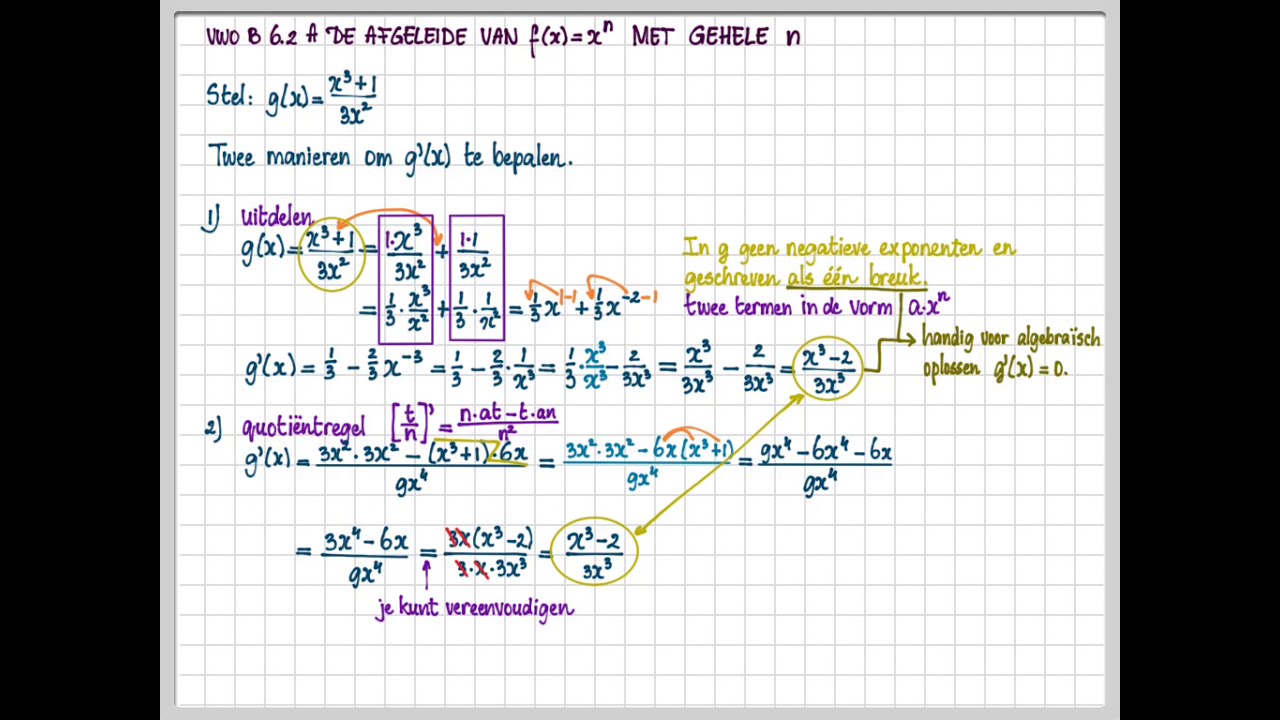 VWO B 6.2 A DE AFGELEIDE VAN f(x)=xⁿ MET GEHELE n
Stel: g(x)= (x³+1)/(3x²)
Twee manieren om g'(x) te bepalen.
1) uitdelen
g(x)= (x³+1)/(3x²) = (1·x³)/(3x²) + (1·1)/(3x²)
= 1/3 · x³/x² + 1/3 · 1/x² = 1/3 x^(1-1) + 1/3 x^(-2-1)
In g geen negatieve exponenten en
geschreven als één breuk.
twee termen in de vorm a·xⁿ
handig voor algebraïsch
oplossen g'(x)=0.
g'(x)= 1/3 - 2/3 x⁻³ = 1/3 - 2/3 · 1/x³ = 1/3 · x³/x³ - 2/(3x³) = x³/(3x³) - 2/(3x³) = (x³-2)/(3x³)
2) quotiëntregel [t/n]' = (n·at-t·an)/n²
g'(x)= (3x²·3x² - (x³+1)·6x)/(9x⁴) = (3x²·3x² - 6x(x³+1))/(9x⁴) = (9x⁴-6x⁴-6x)/(9x⁴)
= (3x⁴-6x)/(9x⁴) = (3x(x³-2))/(3·x·3x³) = (x³-2)/(3x³)
je kunt vereenvoudigen